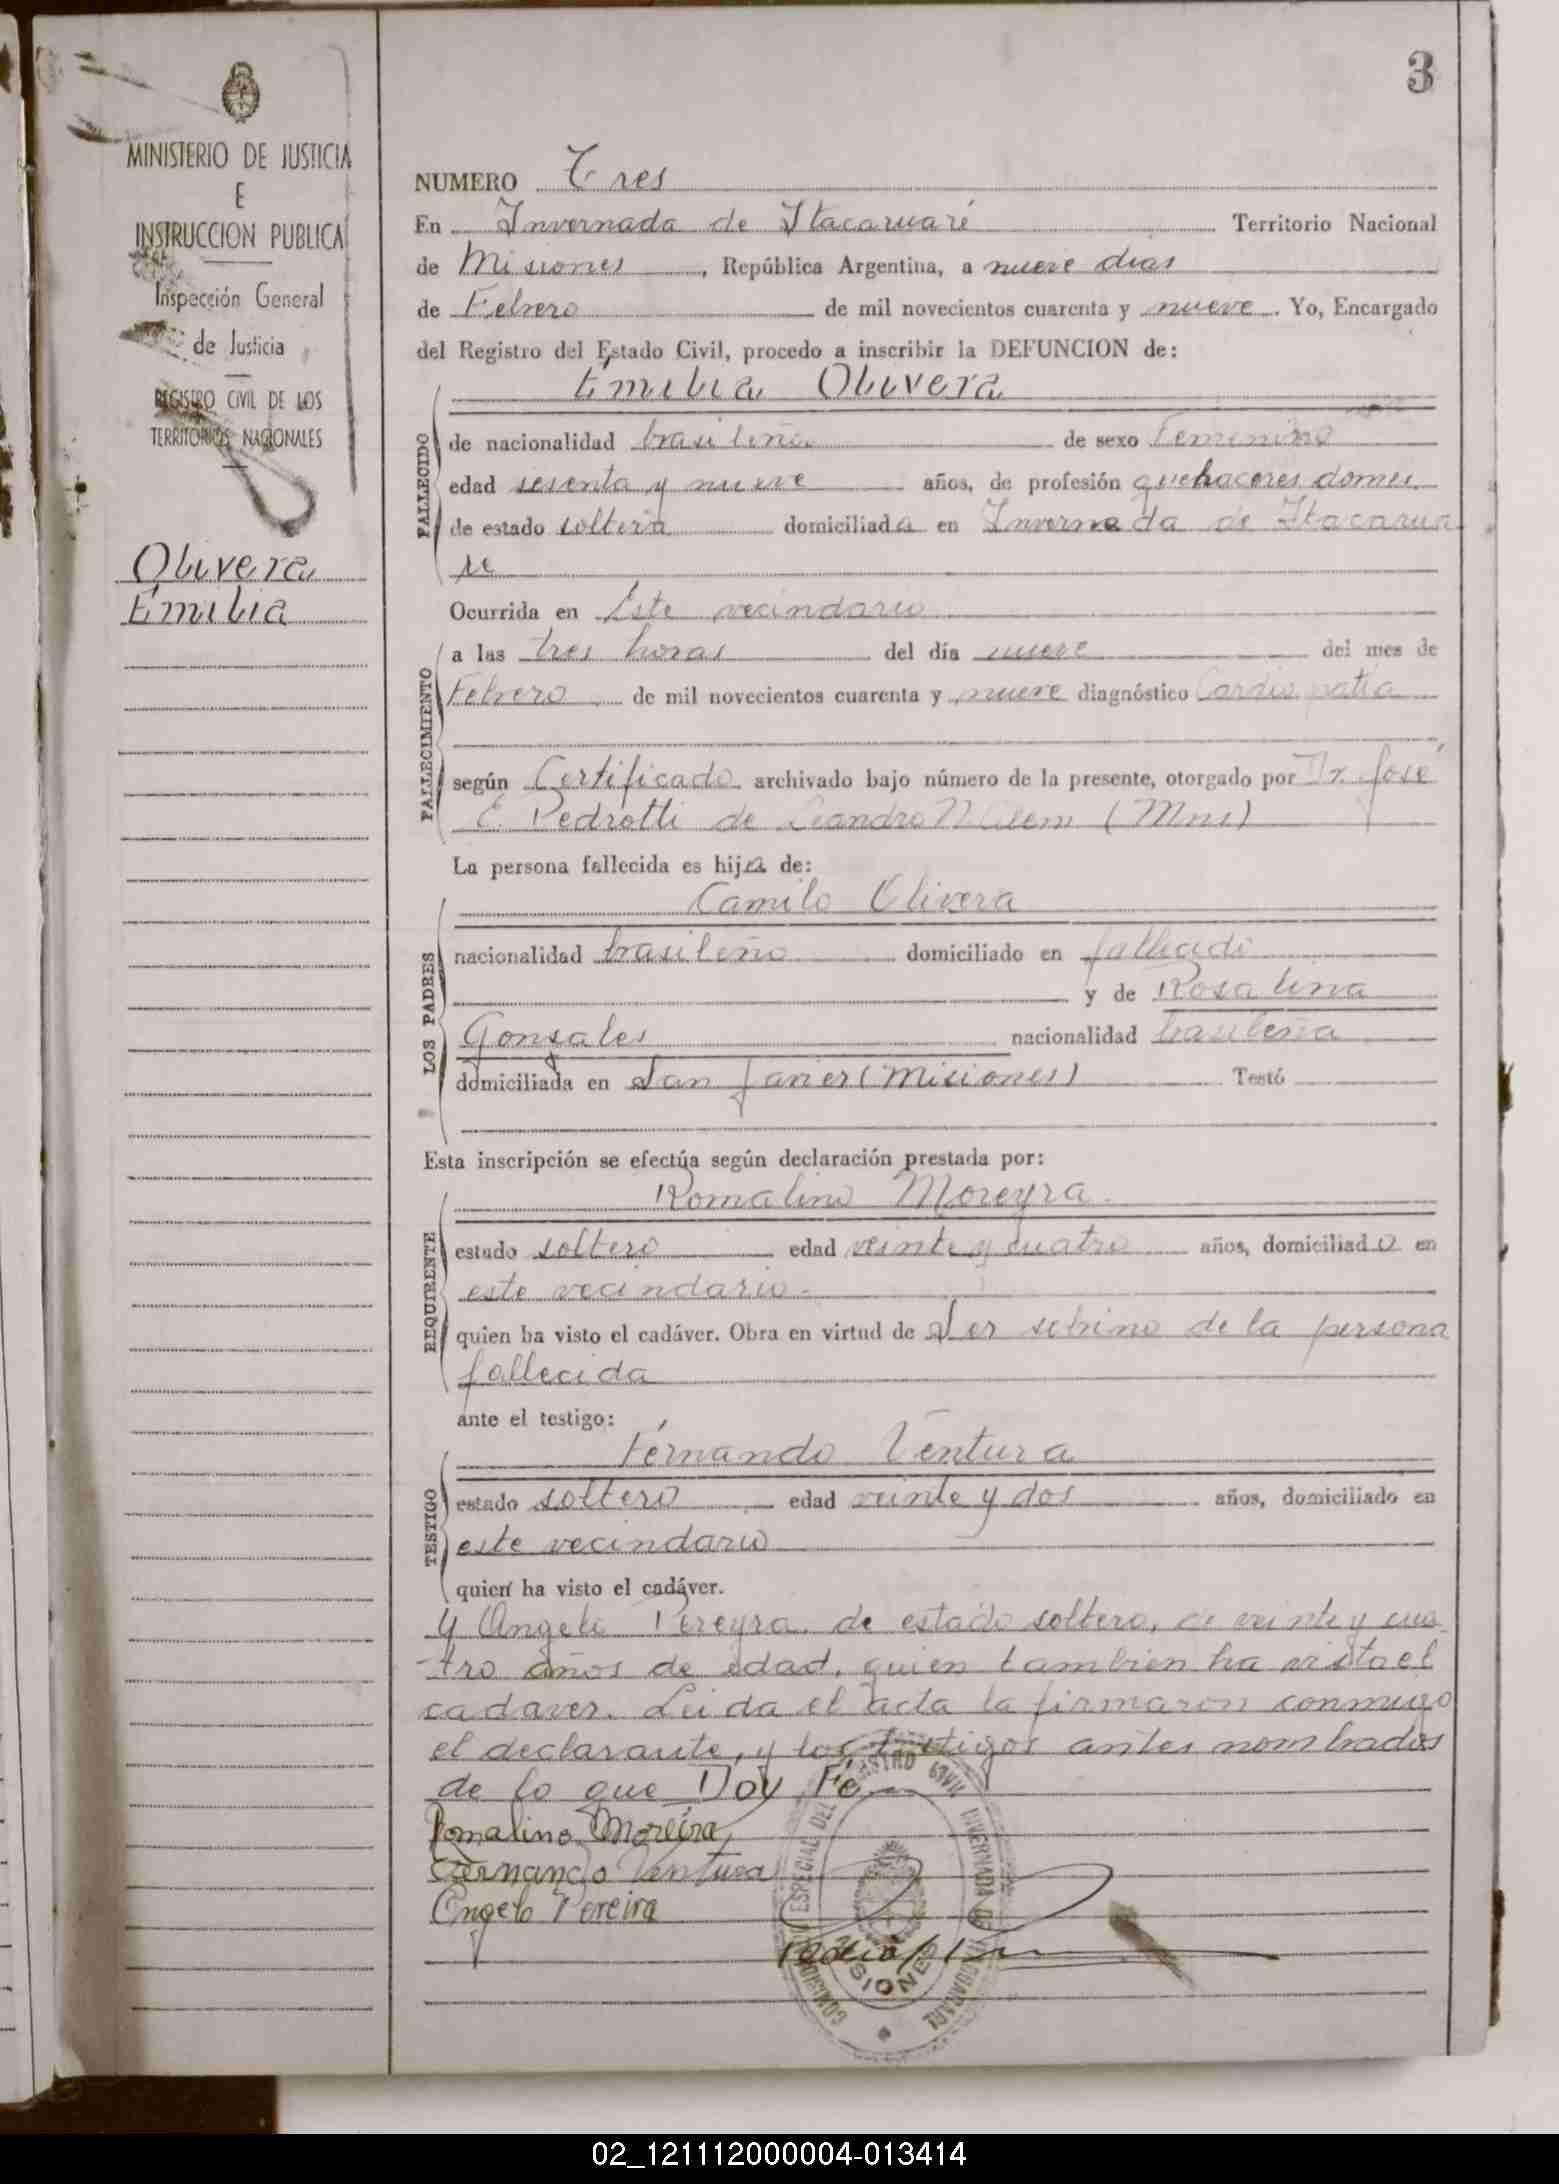 3
MINISTERIO DE JUSTICIA
E
INSTRUCCION PUBLICA
Inspección General
de Justicia
REGISTRO CIVIL DE LOS
TERRITORIOS NACIONALES
Olivera
Emilia
NUMERO Tres
En Invernada de Itacaruaré Territorio Nacional
de Misiones, República Argentina, a nueve dias
de Febrero de mil novecientos cuarenta y nueve. Yo, Encargado
del Registro del Estado Civil, procedo a inscribir la DEFUNCION de:
Emilia Olivera
FALLECIDO
de nacionalidad brasileña de sexo Femenino
edad sesenta y nueve años, de profesión quehaceres domes.
de estado soltera domiciliada en Invernada de Itacarua
re
Ocurrida en Este vecindario
FALLECIMIENTO
a las tres horas del día nueve del mes de
Febrero de mil novecientos cuarenta y nueve diagnóstico Cardiopatia
según Certificado archivado bajo número de la presente, otorgado por Dr. José
E. Pedrotti de Leandro N. Alem (Mnes)
La persona fallecida es hija de:
LOS PADRES
Camilo Olivera
nacionalidad brasileño domiciliado en fallecido
y de Rosalina
Gonsales nacionalidad brasileña
domiciliada en San Javier (Misiones) Testó
Esta inscripción se efectúa según declaración prestada por:
REQUIRENTE
Romalino Moreyra.
estado soltero edad veinte y cuatro años, domiciliado en
este vecindario.
quien ha visto el cadáver. Obra en virtud de Ser sobrino de la persona
fallecida
ante el testigo:
TESTIGO
Fernando Ventura
estado soltero edad veinte y dos años, domiciliado en
este vecindario
quien ha visto el cadáver.
y Angelo Pereyra, de estado soltero, de veinte y cua
tro años de edad, quien tambien ha visto el
cadaver. Leida el acta la firmaron conmigo
el declarante, y los testigos antes nombrados
de lo que Doy Fé.
Romalino Moreira
Fernando Ventura
Angelo Pereira
COMISION ESPECIAL DEL REGISTRO CIVIL INVERNADA DE ITACARUARE
MISIONES
02_121112000004-013414